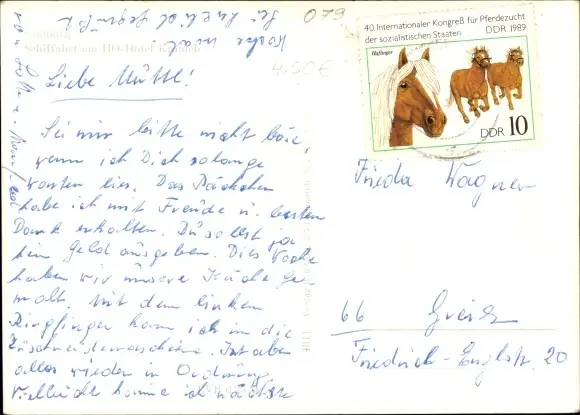 079
4.50€
Liebe Mutti!
Sei mir bitte nicht böse,
wenn ich Dich so lange
warten lies. Das Päckchen
habe ich mit Freude u. besten
Dank erhalten. Du sollst ja
kein Geld ausgeben. Diese Woche
haben wir unsere Küche ge-
malt. Mit dem linken
Ringfinger kam ich in die
ist aber
alles wieder in Ordnung
Vielleicht komme ich nächste
Woche mal
Sei herzl. gegrüßt
40. Internationaler Kongreß für Pferdezucht
der sozialistischen Staaten DDR 1989
Haflinger
DDR 10
Frieda Wagner
66 Greiz
Friedrich-Engelsstr. 20